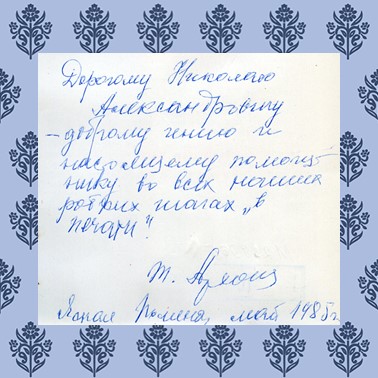 Дорогому Николаю
Александровичу
– доброму гению и
настоящему помощ-
нику во всех наших
робких шагах „в
печати“.
Т.
май 1985 г.